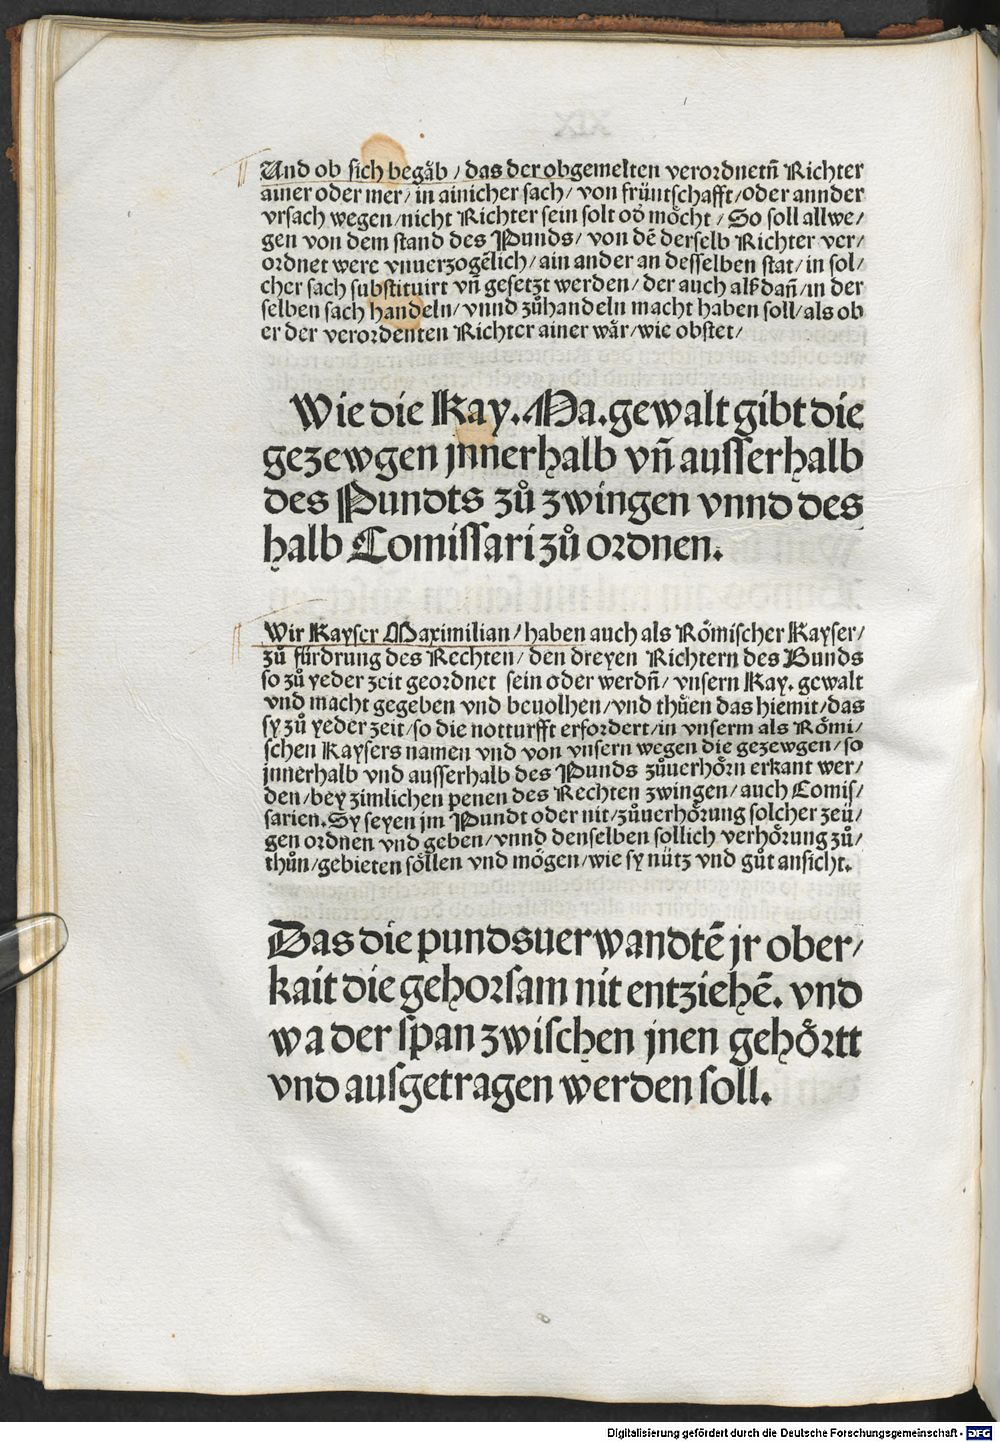 Und ob sich begåb / das der obgemelten verordnetn̄ Richter
ainer oder mer / in ainicher sach / von früntschafft / oder annder
vrsach wegen / nicht Richter sein solt od̕ möcht / So soll allwe /
gen von dem stand des Punds / von dē derselb Richter ver /
ordnet were vnuerzogēlich / ain ander an desselben stat / in sol /
cher sach substituirt vn̄ gesetzt werden / der auch alßdan̄ / in der
selben sach handeln / vnnd zůhandeln macht haben soll / als ob
er der verordenten Richter ainer wår / wie obstet /
Wie die Kay. Ma. gewalt gibt die
gezewgen jnnerhalb vn̄ ausserhalb
des Pundts zů zwingen vnnd des
halb Comissari zů ordnen.
Wir Kayser Maximilian / haben auch als Römischer Kayser /
zů fürdrung des Rechten / den dreyen Richtern des Bunds
so zů yeder zeit geordnet sein oder werdn̄ / vnsern Kay. gewalt
vnd macht gegeben vnd beuolhen / vnd thůen das hiemit / das
sy zů yeder zeit / so die notturfft erfordert / in vnserm als Römi /
schen Kaysers namen vnd von vnsern wegen die gezewgen / so
jnnerhalb vnd ausserhalb des Punds zůuerhörn erkant wer /
den / bey zimlichen penen des Rechten zwingen / auch Comis /
sarien. Sy seyen jm Pundt oder nit / zůuerhörung solcher zeü /
gen ordnen vnd geben / vnnd denselben sollich verhörung zů /
thůn / gebieten söllen vnd mögen / wie sy nütz vnd gůt ansicht.
Das die pundsuerwandtē jr ober /
kait die gehorsam nit entziehē. vnd
wa der span zwischen jnen gehörtt
vnd ausgetragen werden soll.
Digitalisierung gefördert durch die Deutsche Forschungsgemeinschaft - DFG